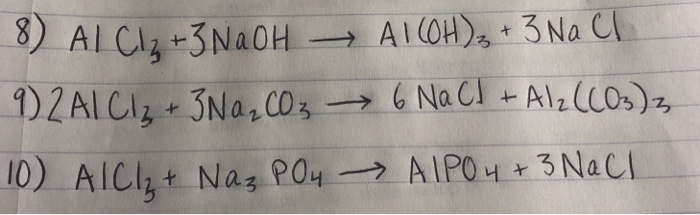 8) AlCl₃ + 3NaOH → Al(OH)₃ + 3NaCl
9) 2AlCl₃ + 3Na₂CO₃ → 6NaCl + Al₂(CO₃)₃
10) AlCl₃ + Na₃PO₄ → AlPO₄ + 3NaCl